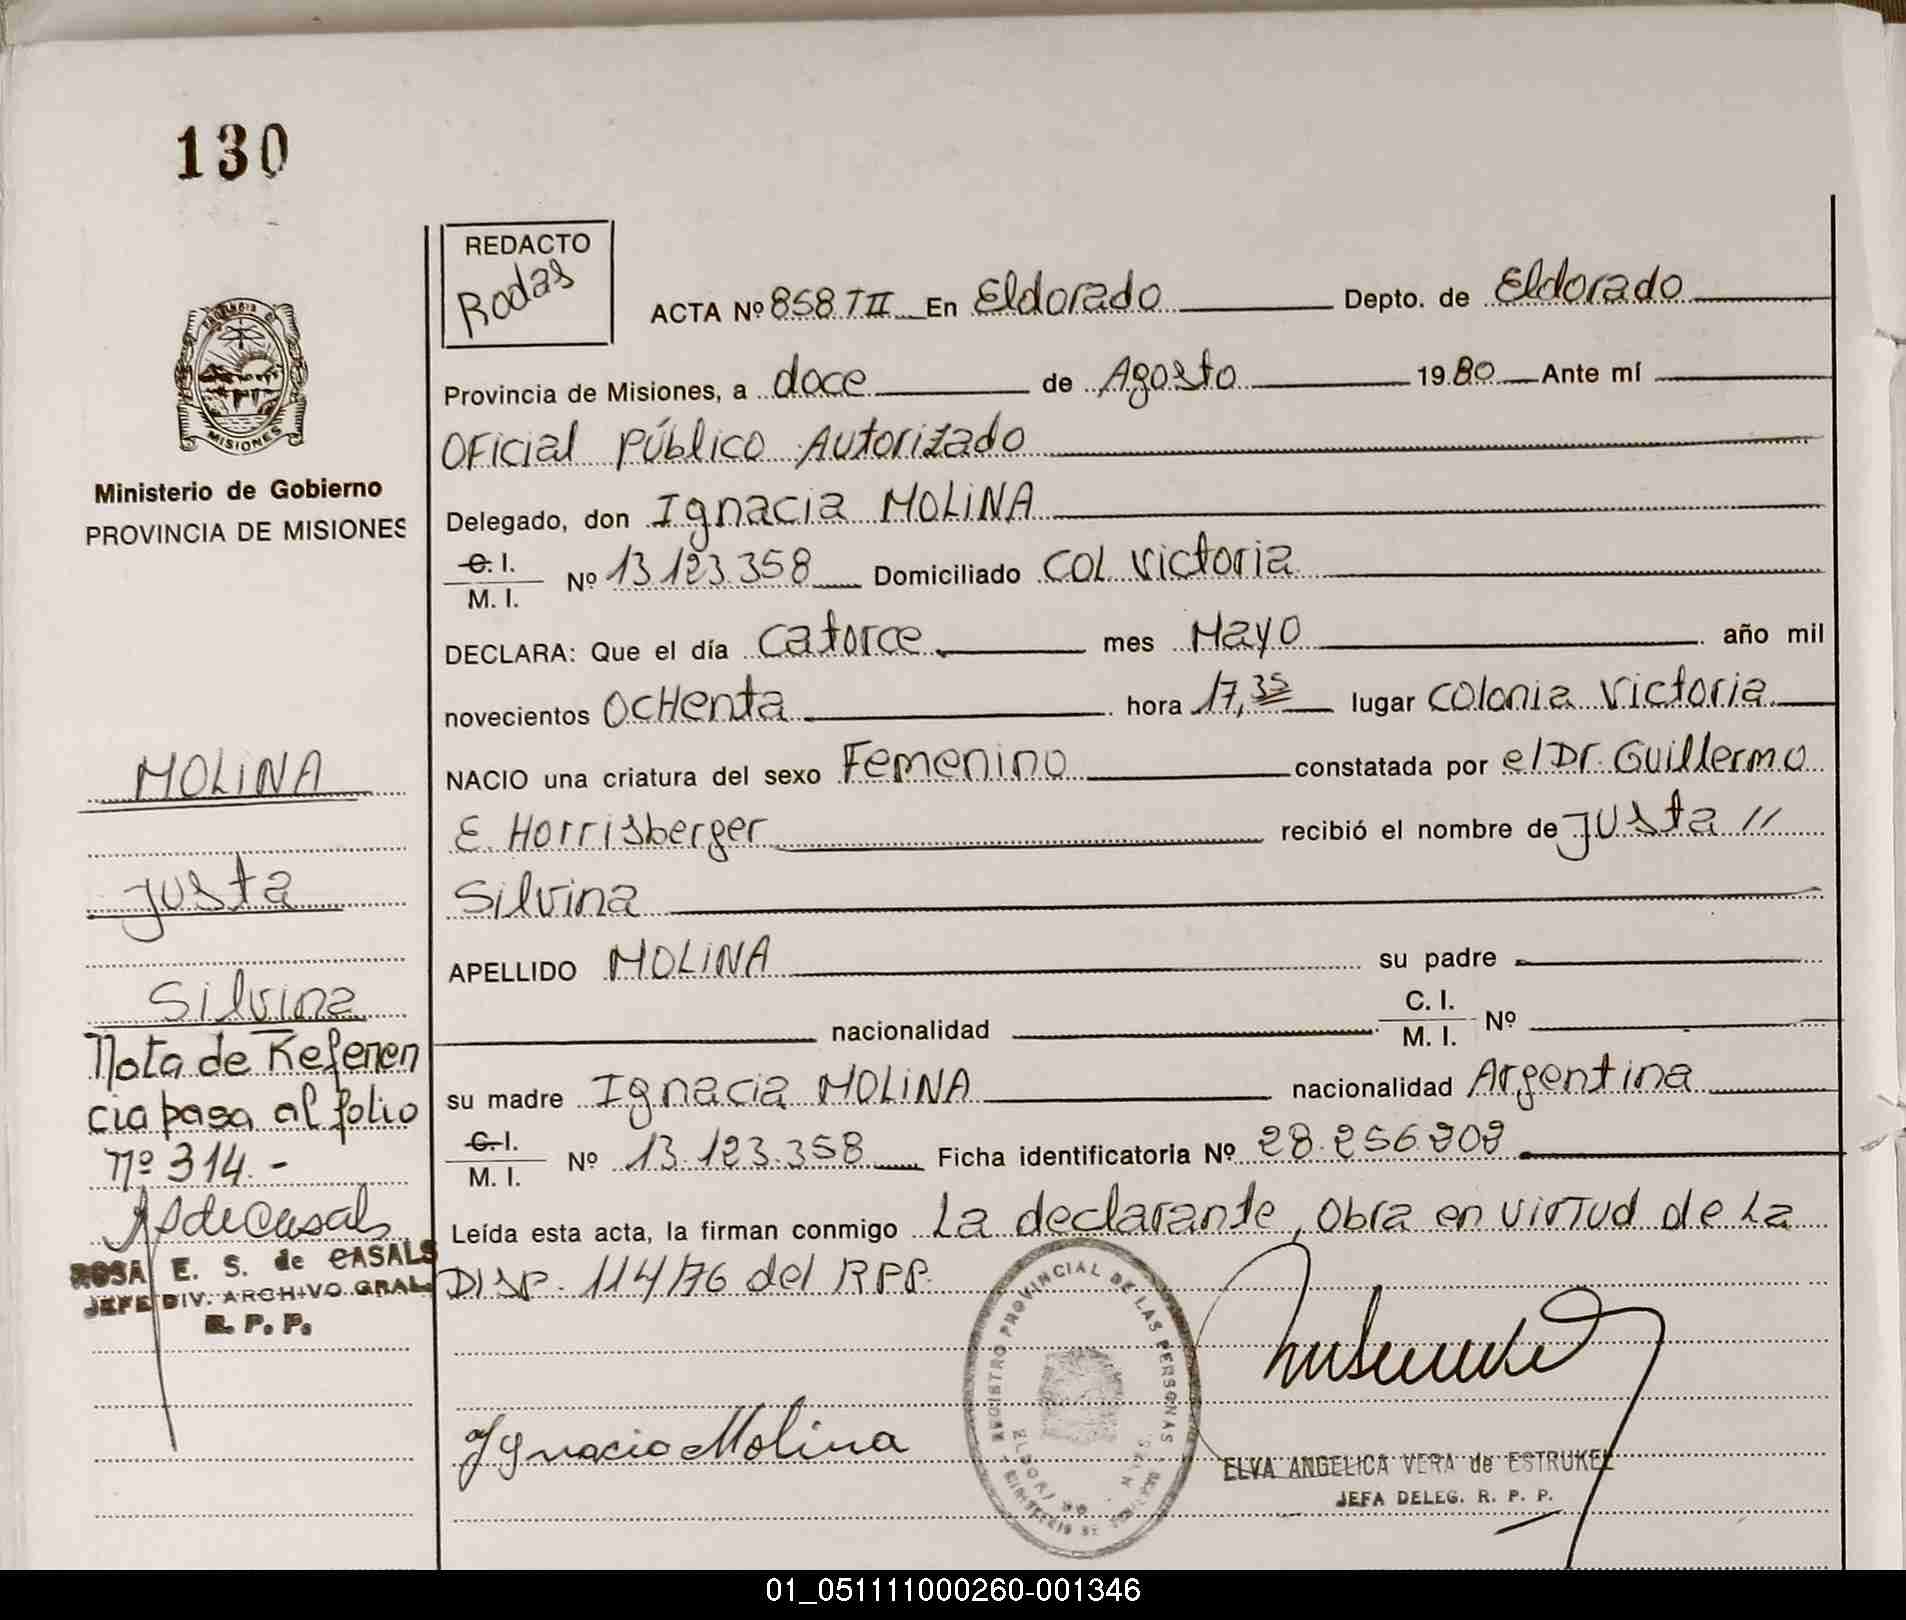 130
REDACTO
Rodas
ACTA Nº 858 TII En Eldorado Depto. de Eldorado
Provincia de Misiones, a doce de Agosto 1980 Ante mí
Oficial Público Autorizado
Delegado, don Ignacia MOLINA
C. I.
M. I. Nº 13.123.358 Domiciliado COL Victoria
DECLARA: Que el día catorce mes Mayo año mil
novecientos OCHenta hora 17,35 lugar Colonia Victoria
NACIO una criatura del sexo Femenino constatada por el Dr. Guillermo
E. Horrisberger recibió el nombre de Justa //
Silvina
APELLIDO MOLINA su padre
nacionalidad C. I.
M. I. Nº
su madre Ignacia MOLINA nacionalidad Argentina
C. I.
M. I. Nº 13.123.358 Ficha identificatoria Nº 28.256.909
Leída esta acta, la firman conmigo La declarante, Obra en virtud de La
DISP. 114/76 del RPP.
Ignacia Molina
REGISTRO PROVINCIAL DE LAS PERSONAS
ELVA ANGELICA VERA de ESTRUKEL
JEFA DELEG. R. P. P.
MISIONES
Ministerio de Gobierno
PROVINCIA DE MISIONES
MOLINA
Justa
Silvina
Nota de Referen
cia pasa al folio
Nº 314.-
ROSA E. S. de CASALS
JEFE DIV. ARCHIVO GRAL.
R. P. P.
01_051111000260-001346